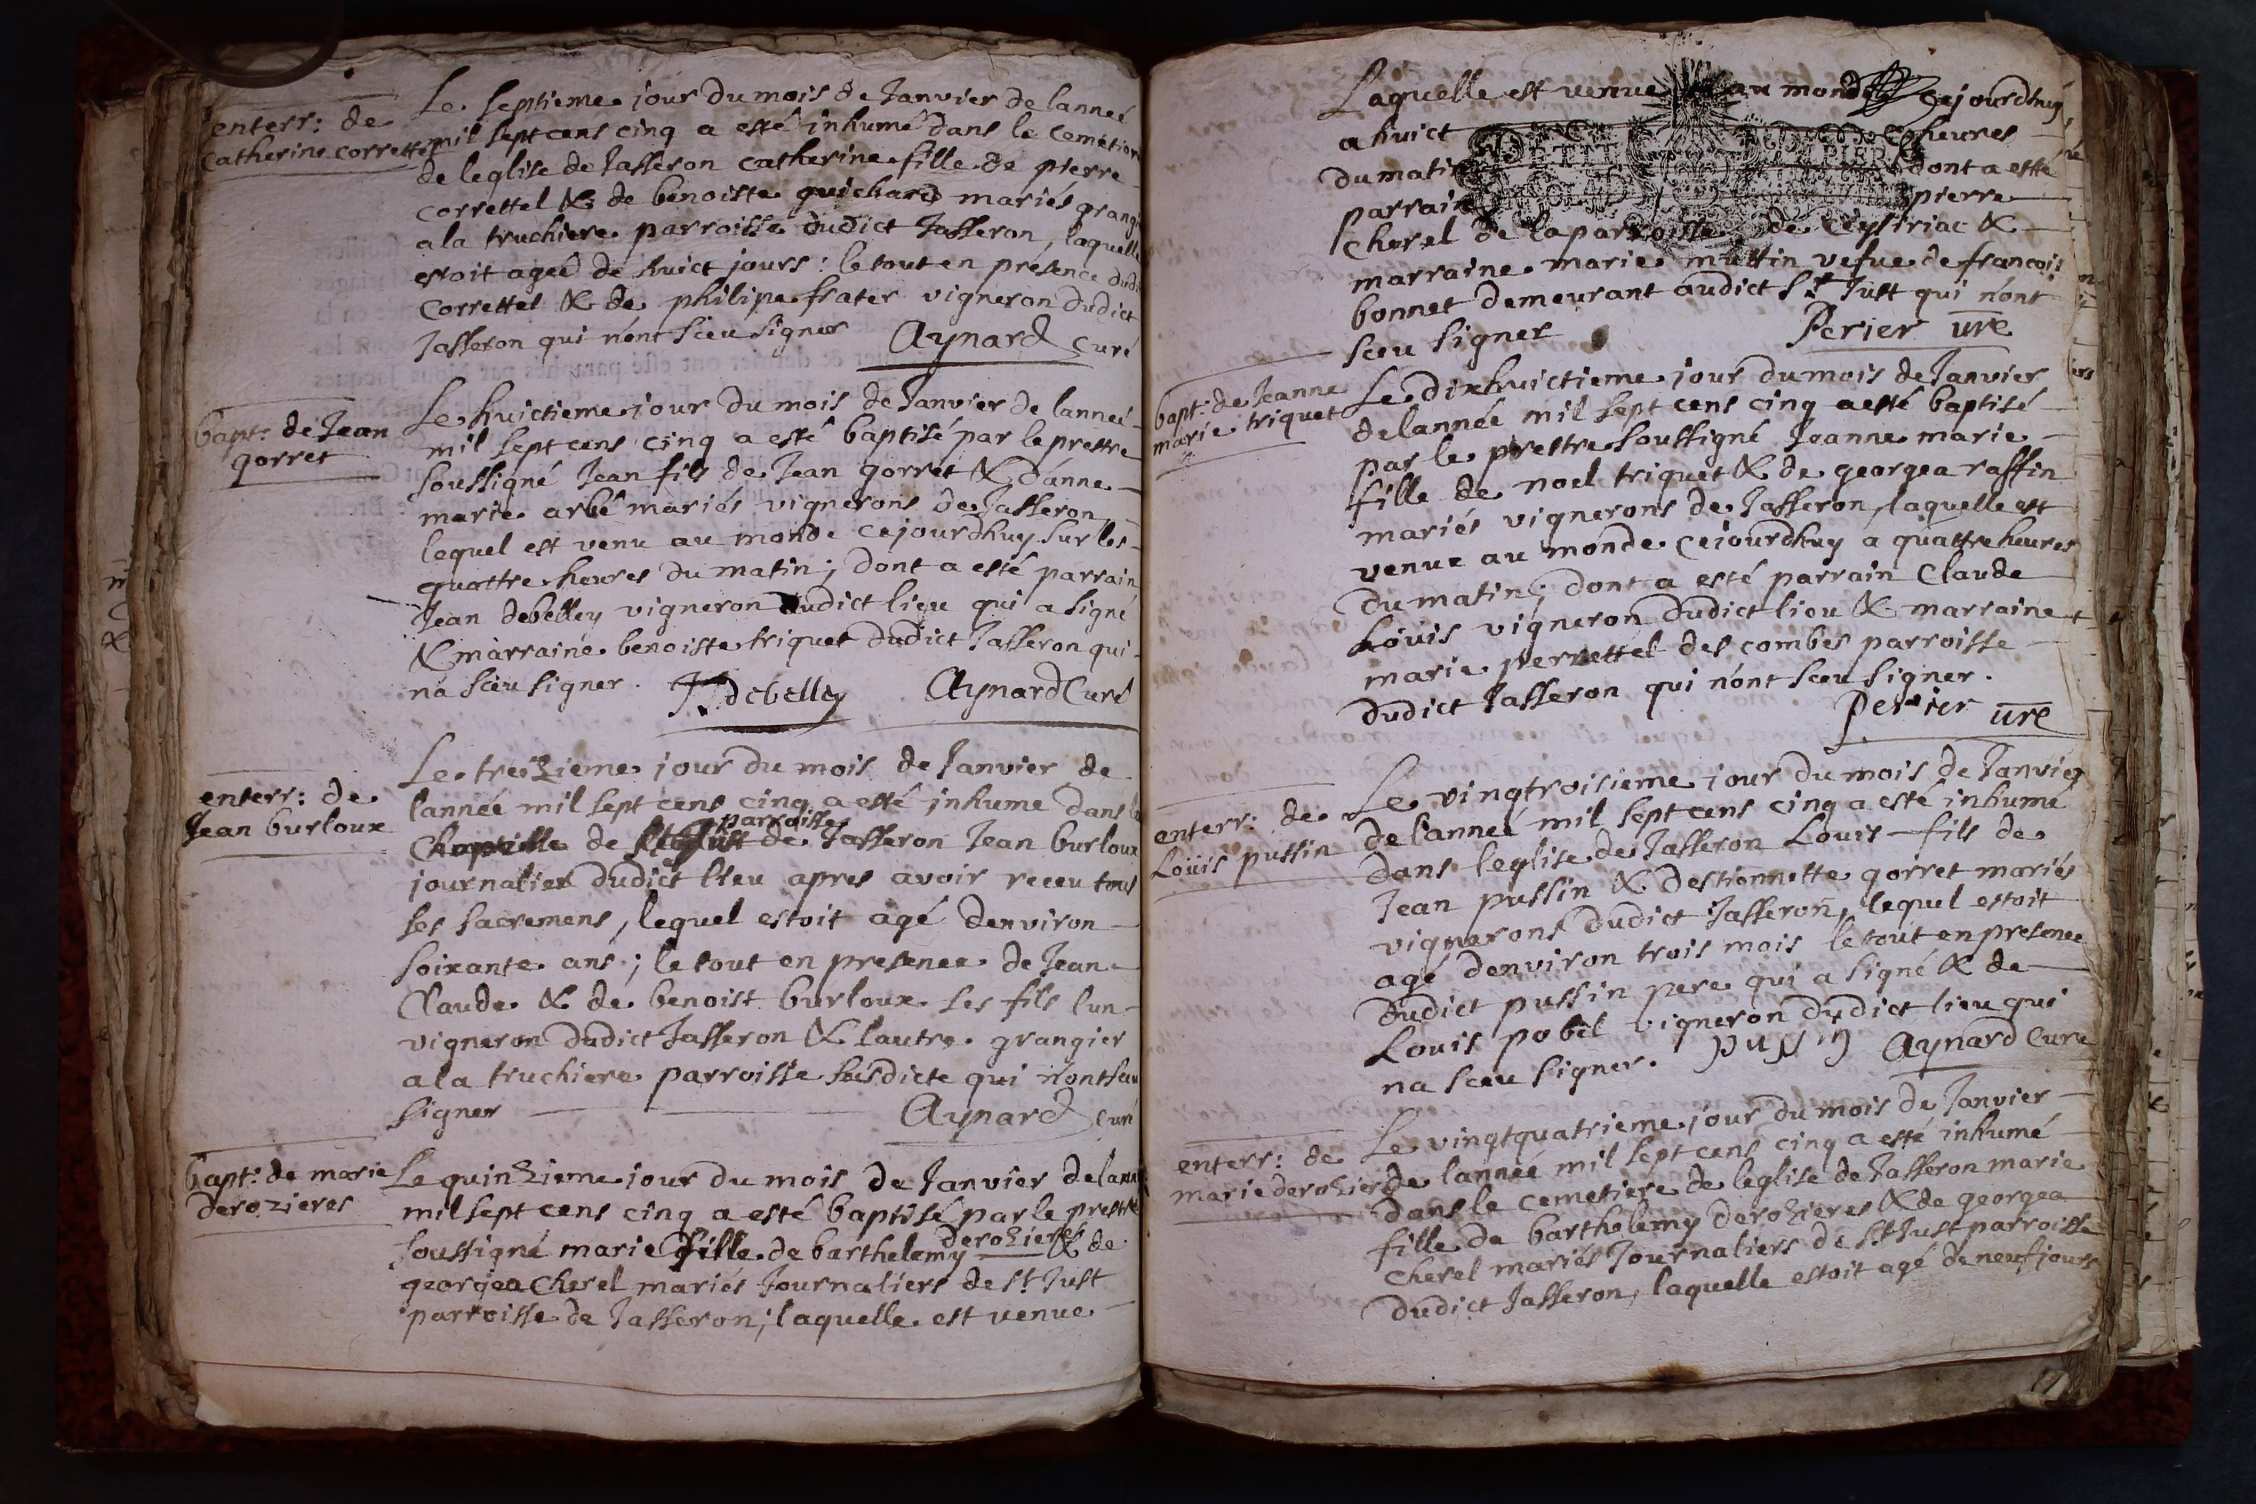 enterr: de
Catherine correttel
Le septieme jour du mois de Janvier de lanneé
mil sept cens cinq a esté inhumé dans le cemetiere
de leglise de Jasseron catherine fille de pierre
correttel & de benoiste guichard mariés grangers
a la truchiere parroisse dudict Jasseron, laquelle
estoit ageé de huict jours : le tout en présence dudict
Correttel & de philipe frater vigneron dudict
Jasseron qui n'ont sceu signer Aynard curé
bapt: de Jean
gorret
Le huictieme jour du mois de Janvier de lanneé
mil sept cens cinq a esté baptisé par le prestre
soussigné Jean fils de Jean gorret & d'anne
marie arbé mariés vignerons de Jasseron
lequel est venu au monde cejourdhuy sur les
quattre heures du matin ; dont a esté parrain
Jean debelley vigneron dudict lieu qui a signé
& marraine benoiste triquet dudict Jasseron qui
n'a sceu signer. J. debelley Aynard Curé
enterr: de
Jean burloux
Le treizieme jour du mois de Janvier de
lannée mil sept cens cinq a esté inhume dans la
parroisse
Chapelle de St Just de Jasseron Jean burloux
journalier dudict lieu apres avoir receu tous
ses sacremens, lequel estoit agé denviron
soixante ans ; le tout en presence de Jean
Claude & de benoist burloux ses fils lun
vigneron dudict Jasseron & lautre grangier
a la truchiere parroisse susdicte qui n'ont sceu
signer Aynard curé
bapt: de marie
derozieres
Le quinzieme jour du mois de Janvier de lannee
mil sept cens cinq a esté baptisé par le prestre
derozieres
soussigné marie fille de barthelemy & de
georgea Cherel mariés Journaliers de St Just
parroisse de Jasseron ; laquelle est venue
Laquelle est venue au monde cejourdhuy
a huict heures
du matin dont a esté
parrain pierre
Cherel de la parroisse de Ceysiriac &
marraine marie muttin vefue de francois
bonnet demeurant audict St Just qui n'ont
sceu signer Perier vre
bapt: de Jeanne
marie triquet
Le dixhuictieme jour du mois de Janvier
de lannée mil sept cens cinq a esté baptisé
par le prestre soussigné Jeanne marie
fille de noel triquet & de georgea raffin
mariés vignerons de Jasseron, laquelle est
venue au monde cejourdhuy a quattre heures
du matin ; dont a esté parrain Claude
Loüis vigneron dudict lieu & marraine
marie perrettel des combes parroisse
dudict Jasseron qui n'ont sceu signer.
Perier vre
enterr: de
Loüis pussin
Le vingtroisieme jour du mois de Janvier
de l'anneé mil sept cens cinq a esté inhumé
dans leglise de Jasseron Louis fils de
Jean pussin & destiennette gorret mariés
vignerons dudict Jasseron, lequel estoit
agé denviron trois mois le tout en presence
dudict pussin pere qui a signé & de
Louis pobel vigneron dudict lieu qui
na sceu signer. pussin Aynard Curé
enterr: de
marie derozieres
Le vingtquatrieme jour du mois de Janvier
de lanneé mil sept cens cinq a esté inhumé
dans le cemetiere de leglise de Jasseron marie
fille de barthelemy derozieres & de georgea
Cherel mariés Journaliers de St Just parroisse
dudict Jasseron, laquelle estoit agé de neuf jours
17